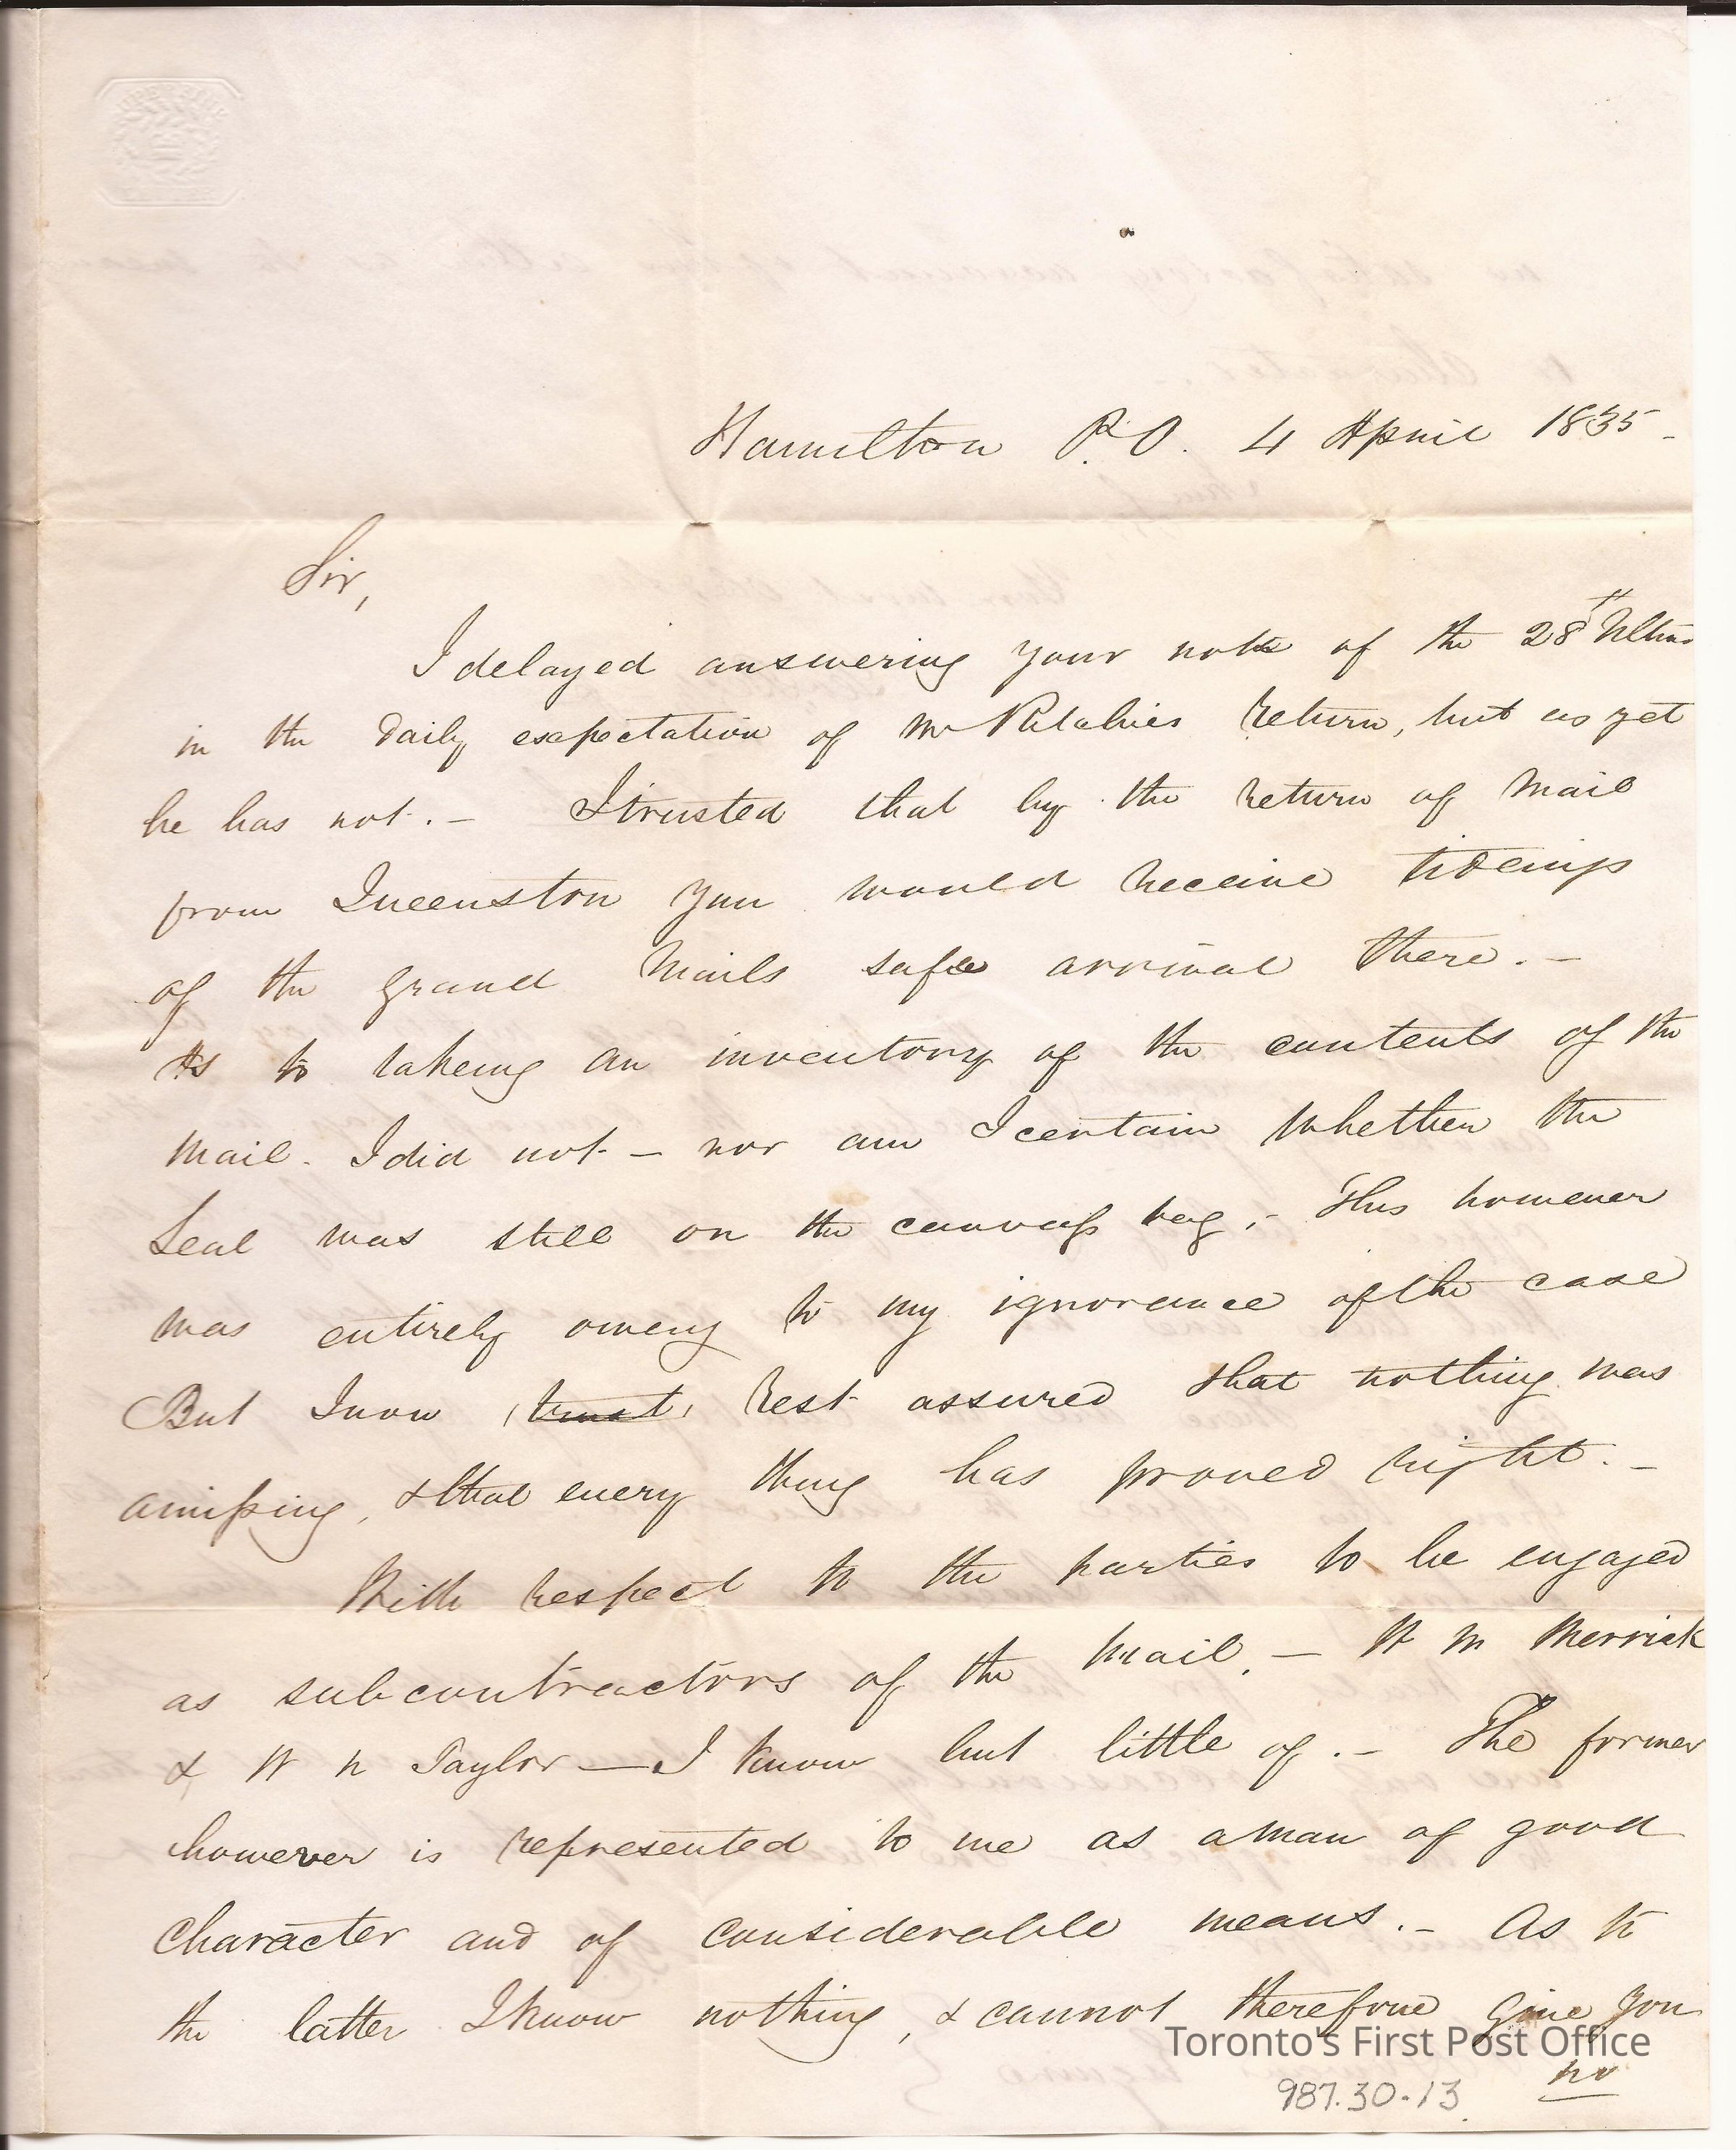 Hamilton P.O. 4 April 1835 -
Sir,
I delayed answering your note of the 28th Ultimo
in the Daily expectation of Mr Ritchies return, but as yet
he has not. - I trusted that by the return of Mail
from Queenston you would receive tideings
of the Grand Mails safe arrival there. -
As to takeing an inventory of the contents of the
Mail - I did not - nor am I certain whether the
Seal was still on the canvass bag, - This however
was entirely oweing to my ignorance of the case
But I now trust, rest assured that nothing was
amissing, & that every thing has proved right. -
With respect to the parties to be engaged
as subcontractors of the Mail. - W M Merrick
& W H Taylor - I know but little of. - The former
however is represented to me as a man of good
Character and of considerable means. - As to
the latter I know nothing, & cannot therefore give you
no
Toronto's First Post Office
987.30.13